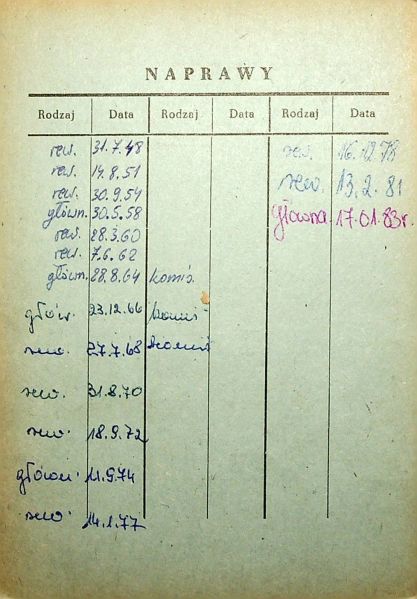 NAPRAWY
Rodzaj Data Rodzaj Data Rodzaj Data
rew. 31.7.48
rew. 14.8.51
rew. 30.9.54
główn. 30.5.58
rew. 28.3.60
rew. 7.6.62
główn. 28.8.64 komis.
głów. 23.12.66 komis
rew. 27.7.68 komis
rew. 31.8.70
rew. 18.9.72
główn. 11.9.74
rew. 14.1.77
rew. 16.12.78
rew. 13.2.81
główna 17.01.83r.